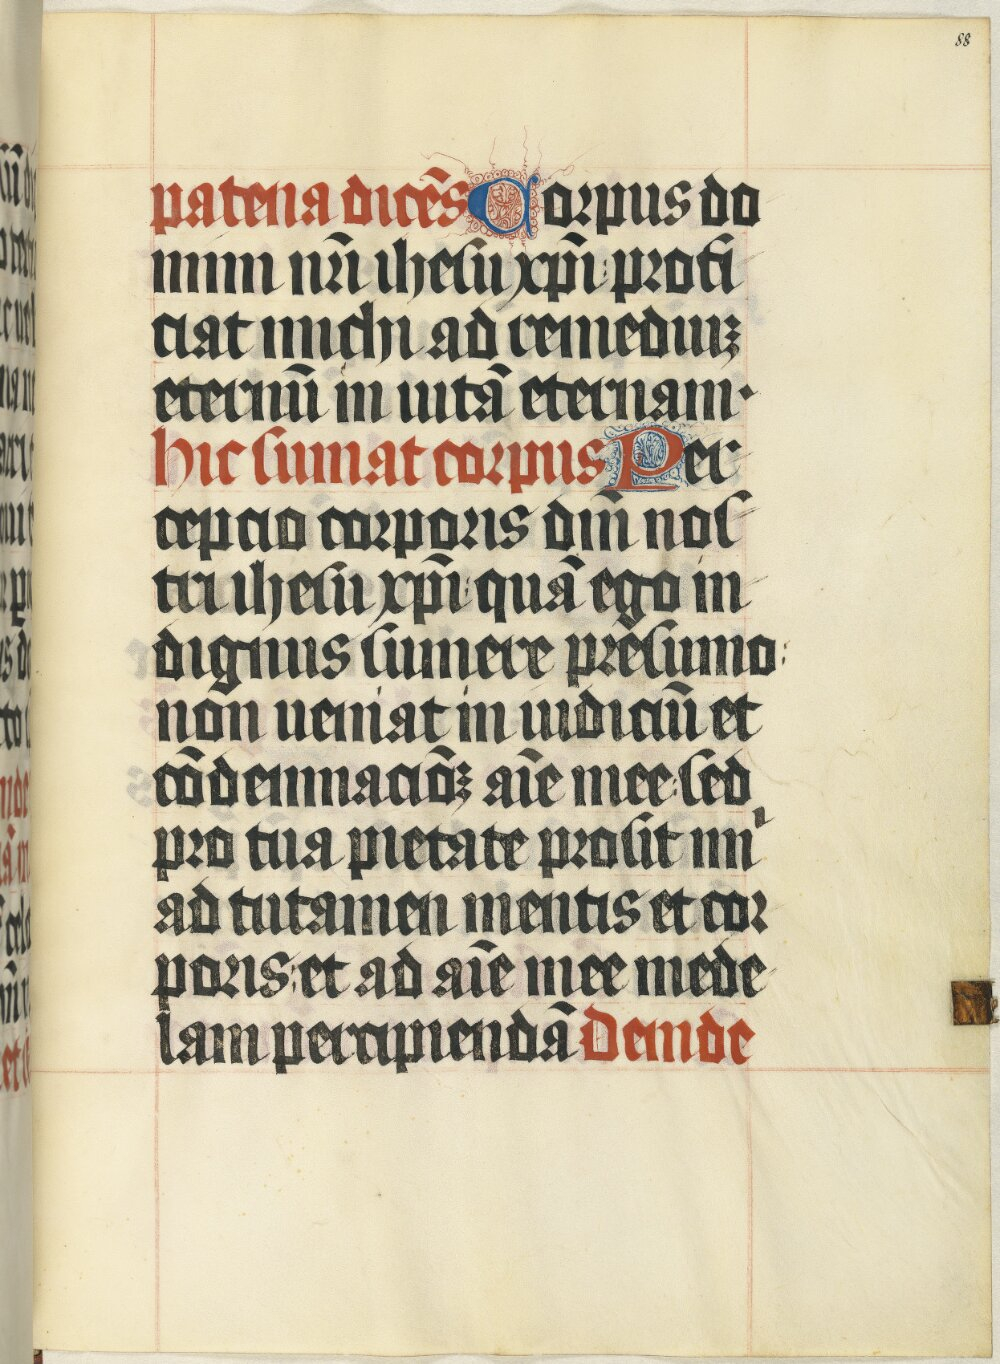 88
patena dicēs Corpus do
mini nr̄i ihesu xp̄i: profi
ciat michi ad remediuꝫ
eternū in uitā eternam·
hic sumat corpus Per
cepcio corporis dn̄i nos
tri ihesu xp̄i: quā ego in
dignus sumere presumo:
non ueniat in iudiciū et
cōdempnacionꝫ aīe mee: sed
pro tua pietate prosit mi
ad tutamen mentis et cor
poris: et ad aīe mee mede
lam percipiendā Deinde